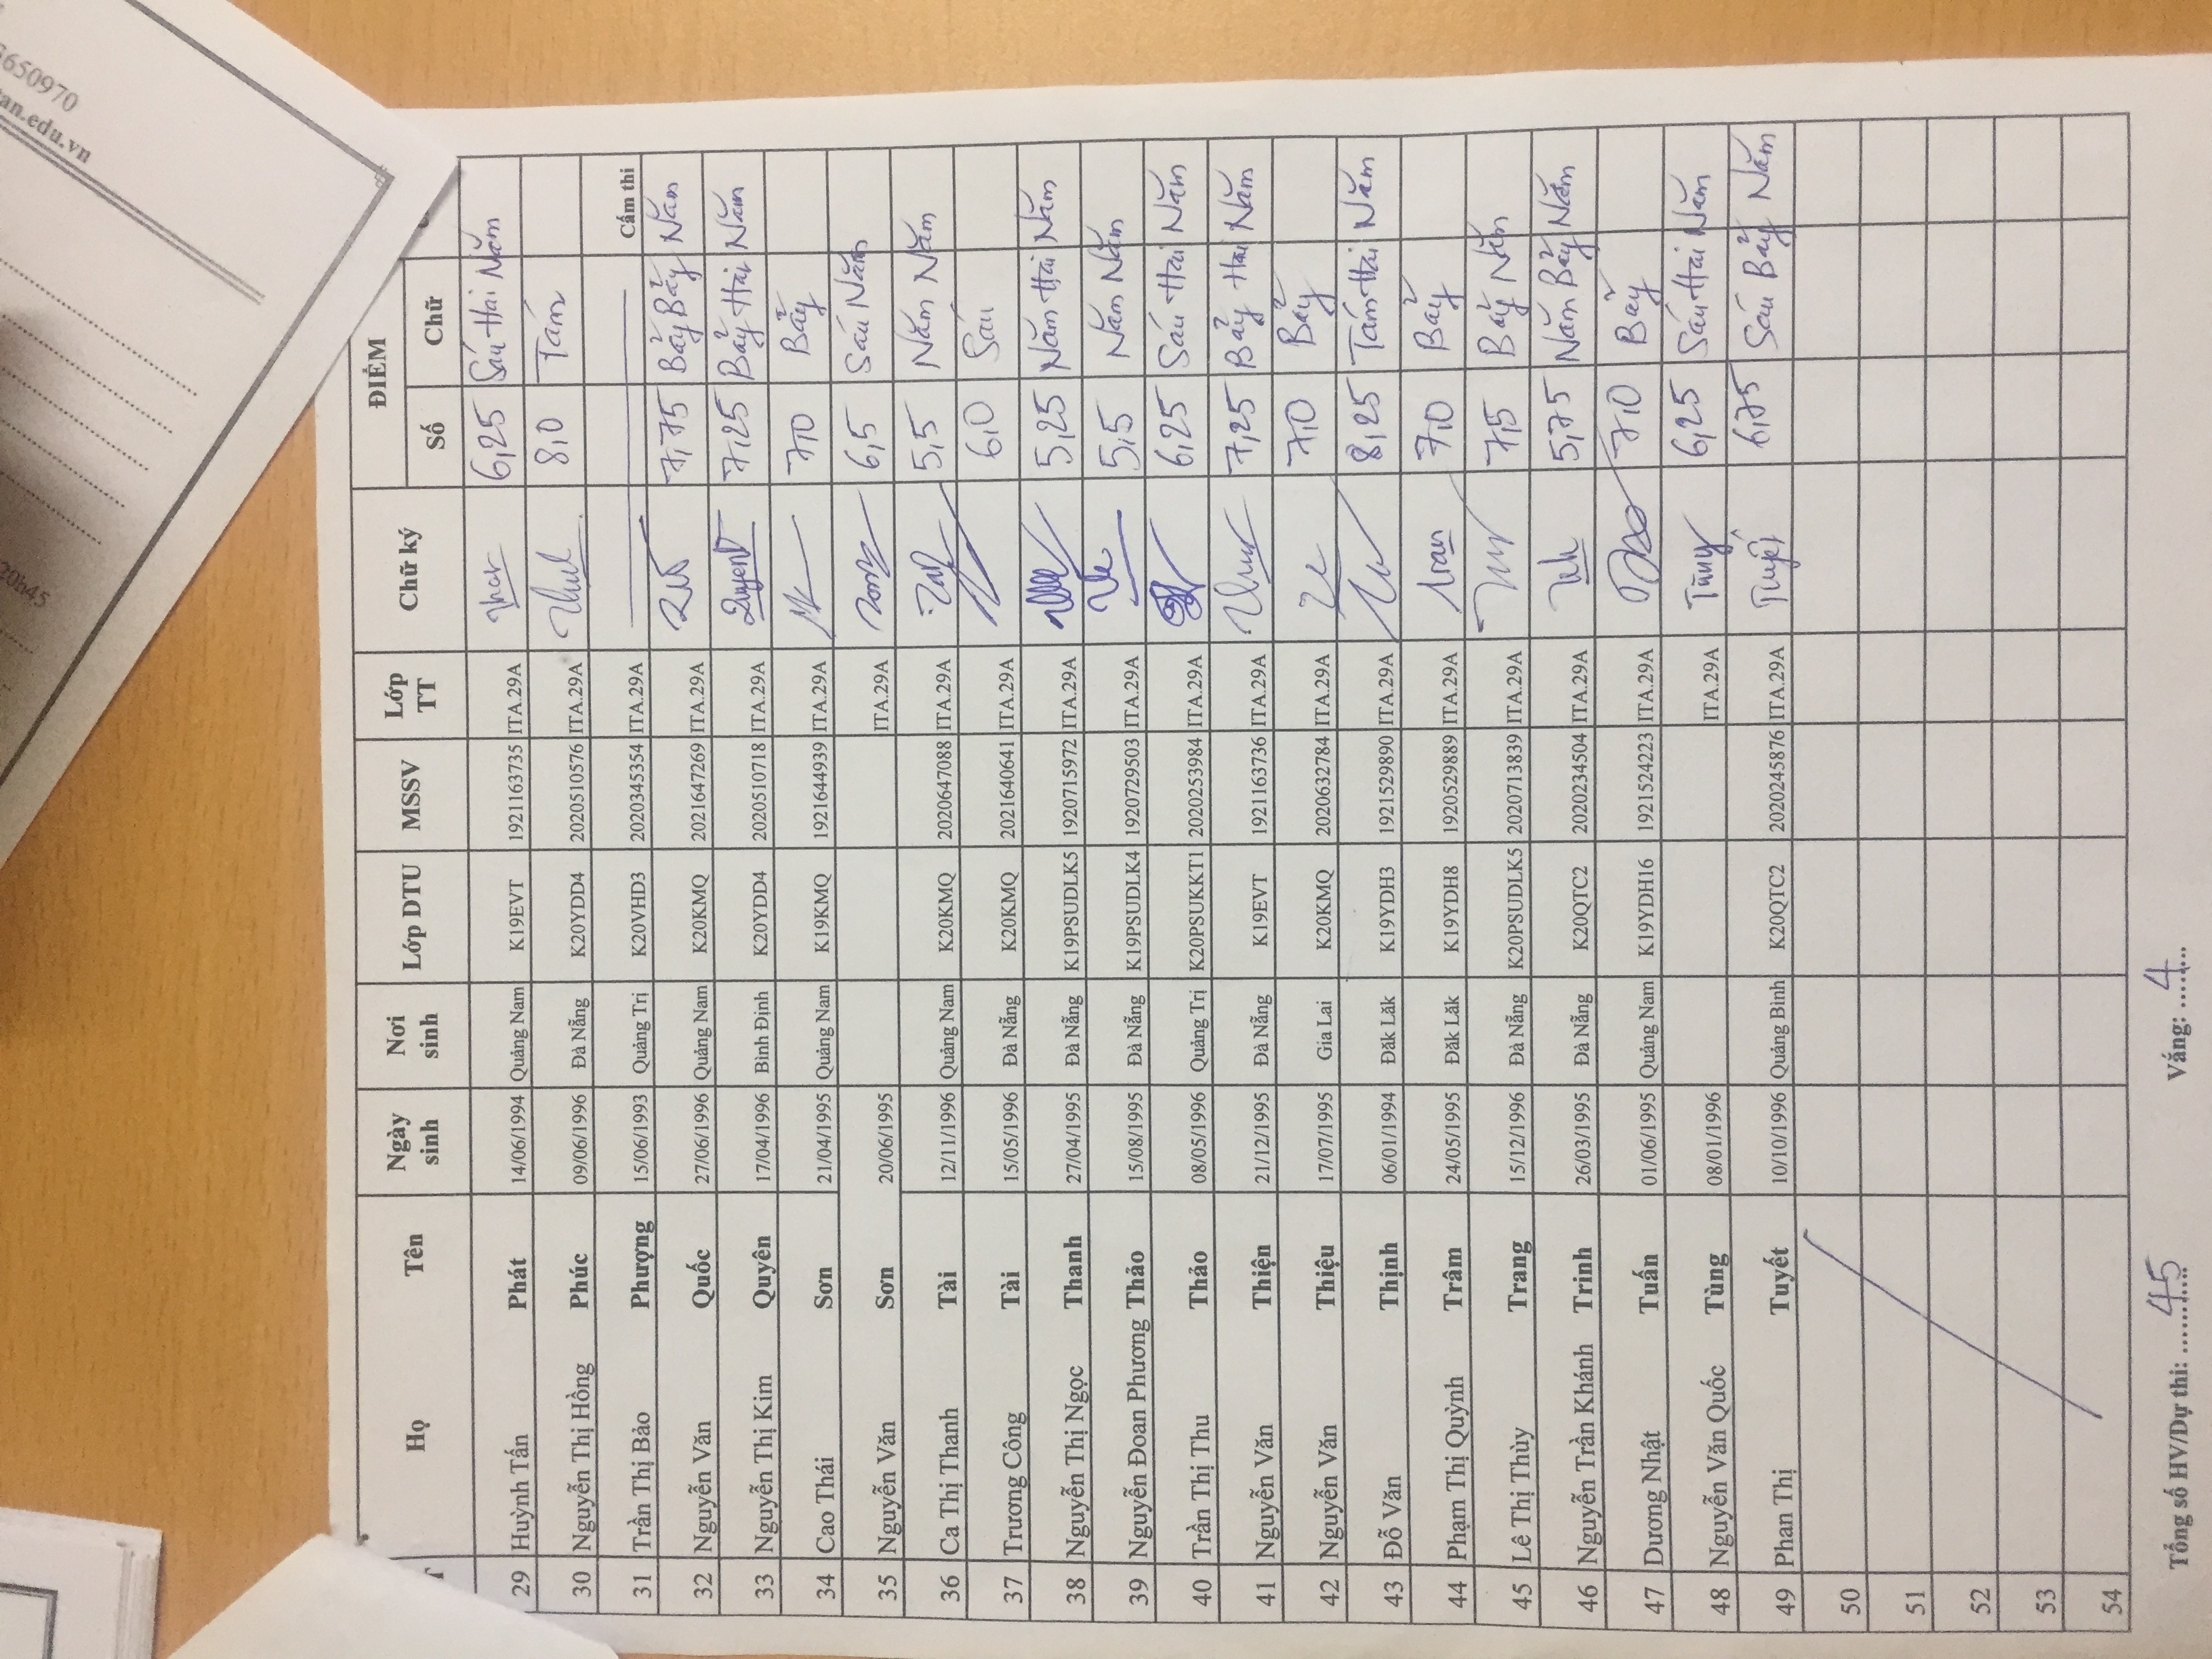 650970
an.edu.vn
20h45
Họ Tên Ngày sinh Nơi sinh Lớp DTU MSSV Lớp TT Chữ ký ĐIỂM Số Chữ
29 Huỳnh Tấn Phát 14/06/1994 Quảng Nam K19EVT 1921163735 ITA.29A 6,25 Sáu Hai Năm
30 Nguyễn Thị Hồng Phúc 09/06/1996 Đà Nẵng K20YDD4 2020510576 ITA.29A 8,0 Tám
31 Trần Thị Bảo Phượng 15/06/1993 Quảng Trị K20VHD3 2020345354 ITA.29A Cấm thi
32 Nguyễn Văn Quốc 27/06/1996 Quảng Nam K20KMQ 2021647269 ITA.29A 7,75 Bảy Bảy Năm
33 Nguyễn Thị Kim Quyên 17/04/1996 Bình Định K20YDD4 2020510718 ITA.29A Quyên 7,25 Bảy Hai Năm
34 Cao Thái Sơn 21/04/1995 Quảng Nam K19KMQ 1921644939 ITA.29A 7,0 Bảy
35 Nguyễn Văn Sơn 20/06/1995 ITA.29A 6,5 Sáu Năm
36 Ca Thị Thanh Tài 12/11/1996 Quảng Nam K20KMQ 2020647088 ITA.29A 5,5 Năm Năm
37 Trương Công Tài 15/05/1996 Đà Nẵng K20KMQ 2021640641 ITA.29A 6,0 Sáu
38 Nguyễn Thị Ngọc Thanh 27/04/1995 Đà Nẵng K19PSUDLK5 1920715972 ITA.29A 5,25 Năm Hai Năm
39 Nguyễn Đoan Phương Thảo 15/08/1995 Đà Nẵng K19PSUDLK4 1920729503 ITA.29A 5,5 Năm Năm
40 Trần Thị Thu Thảo 08/05/1996 Quảng Trị K20PSUKKT1 2020253984 ITA.29A 6,25 Sáu Hai Năm
41 Nguyễn Văn Thiện 21/12/1995 Đà Nẵng K19EVT 1921163736 ITA.29A 7,25 Bảy Hai Năm
42 Nguyễn Văn Thiệu 17/07/1995 Gia Lai K20KMQ 2020632784 ITA.29A 7,0 Bảy
43 Đỗ Văn Thịnh 06/01/1994 Đăk Lăk K19YDH3 1921529890 ITA.29A 8,25 Tám Hai Năm
44 Phạm Thị Quỳnh Trâm 24/05/1995 Đăk Lăk K19YDH8 1920529889 ITA.29A 7,0 Bảy
45 Lê Thị Thùy Trang 15/12/1996 Đà Nẵng K20PSUDLK5 2020713839 ITA.29A 7,5 Bảy Năm
46 Nguyễn Trần Khánh Trinh 26/03/1995 Đà Nẵng K20QTC2 2020234504 ITA.29A 5,75 Năm Bảy Năm
47 Dương Nhật Tuấn 01/06/1995 Quảng Nam K19YDH16 1921524223 ITA.29A 7,0 Bảy
48 Nguyễn Văn Quốc Tùng 08/01/1996 ITA.29A Tùng 6,25 Sáu Hai Năm
49 Phan Thị Tuyết 10/10/1996 Quảng Bình K20QTC2 2020245876 ITA.29A Tuyết 6,75 Sáu Bảy Năm
50
51
52
53
54
Tổng số HV/Dự thi: ....45.... Vắng: ....4....